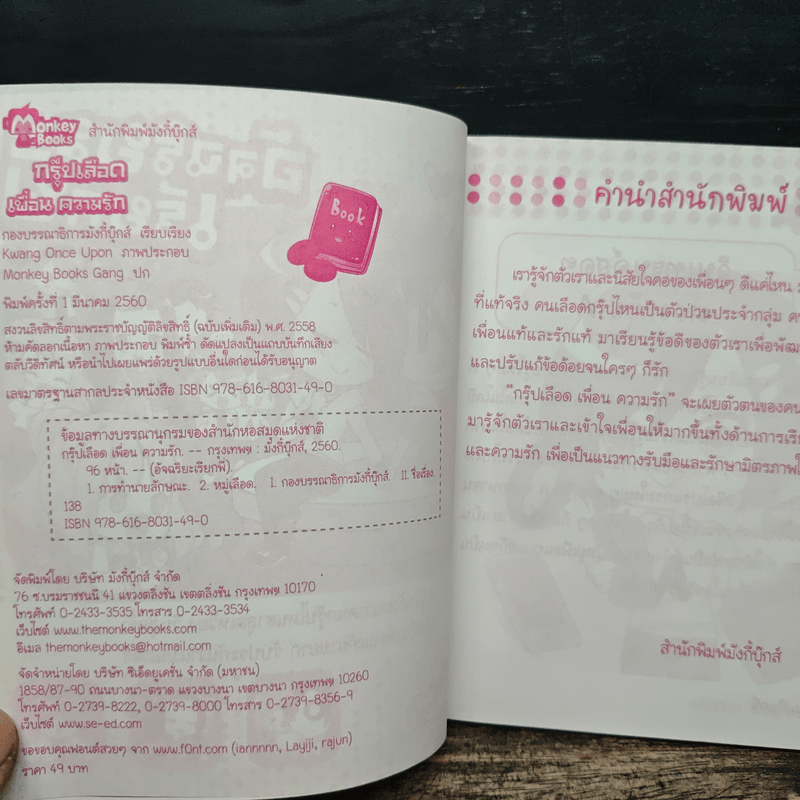 Monkey Books
สำนักพิมพ์มังกี้บุ๊กส์
กรุ๊ปเลือด
เพื่อน ความรัก
Book
กองบรรณาธิการมังกี้บุ๊กส์ เรียบเรียง
Kwang Once Upon ภาพประกอบ
Monkey Books Gang ปก
พิมพ์ครั้งที่ 1 มีนาคม 2560
สงวนลิขสิทธิ์ตามพระราชบัญญัติลิขสิทธิ์ (ฉบับเพิ่มเติม) พ.ศ. 2558
ห้ามคัดลอกเนื้อหา ภาพประกอบ พิมพ์ซ้ำ ดัดแปลงเป็นแถบบันทึกเสียง
ตลับวีดิทัศน์ หรือนำไปเผยแพร่ด้วยรูปแบบอื่นใดก่อนได้รับอนุญาต
เลขมาตรฐานสากลประจำหนังสือ ISBN 978-616-8031-49-0
ข้อมูลทางบรรณานุกรมของสำนักหอสมุดแห่งชาติ
กรุ๊ปเลือด เพื่อน ความรัก. -- กรุงเทพฯ : มังกี้บุ๊กส์, 2560.
96 หน้า. -- (อัจฉริยะเรียกพี่).
1. การทำนายลักษณะ. 2. หมู่เลือด. I. กองบรรณาธิการมังกี้บุ๊กส์. II. ชื่อเรื่อง
138
ISBN 978-616-8031-49-0
จัดพิมพ์โดย บริษัท มังกี้บุ๊กส์ จำกัด
76 ซ.บรมราชชนนี 41 แขวงตลิ่งชัน เขตตลิ่งชัน กรุงเทพฯ 10170
โทรศัพท์ 0-2433-3535 โทรสาร 0-2433-3534
เว็บไซต์ www.themonkeybooks.com
อีเมล themonkeybooks@hotmail.com
จัดจำหน่ายโดย บริษัท ซีเอ็ดยูเคชั่น จำกัด (มหาชน)
1858/87-90 ถนนบางนา-ตราด แขวงบางนา เขตบางนา กรุงเทพฯ 10260
โทรศัพท์ 0-2739-8222, 0-2739-8000 โทรสาร 0-2739-8356-9
เว็บไซต์ www.se-ed.com
ขอขอบคุณฟอนต์สวยๆ จาก www.f0nt.com (iannnnn, Layiji, rajun)
ราคา 49 บาท
คำนำสำนักพิมพ์
เรารู้จักตัวเราและนิสัยใจคอของเพื่อนๆ ดีแค่ไหน
ที่แท้จริง คนเลือดกรุ๊ปไหนเป็นตัวป่วนประจำกลุ่ม
เพื่อนแท้และรักแท้ มาเรียนรู้ข้อดีของตัวเราเพื่อพัฒ
และปรับแก้ข้อด้อยจนใครๆ ก็รัก
"กรุ๊ปเลือด เพื่อน ความรัก" จะเผยตัวตนของคน
มารู้จักตัวเราและเข้าใจเพื่อนให้มากขึ้นทั้งด้านการเรีย
และความรัก เพื่อเป็นแนวทางรับมือและรักษามิตรภาพ
สำนักพิมพ์มังกี้บุ๊กส์